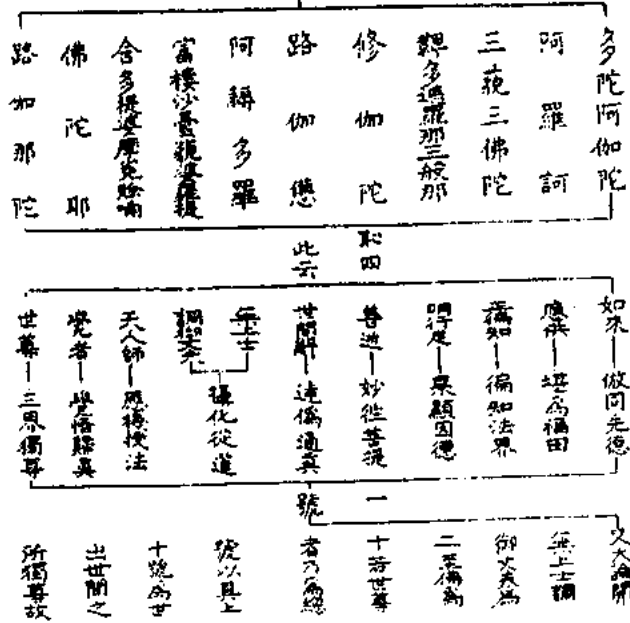 多陀阿伽陀
阿羅訶
三藐三佛陀
鞞多遮羅那三般那
修伽陀
路伽憊
阿耨多羅
富樓沙曇藐婆羅提
舍多提婆摩㝹賒喃
佛陀耶
路加那陀
此云
如來—倣同先德
應供—堪為福田
徧知—徧知法界
明行足—果顯因德
善逝—妙往菩提
世間解—達偽通真
無上士
調御丈夫
攝化從道
天人師—應機授法
覺者—覺悟歸真
世尊—三界獨尊
一號
又大論開
無上士調
御丈夫為
二至佛為
十若世尊
者乃為總
號以具上
十號為世
出世間之
所獨尊故